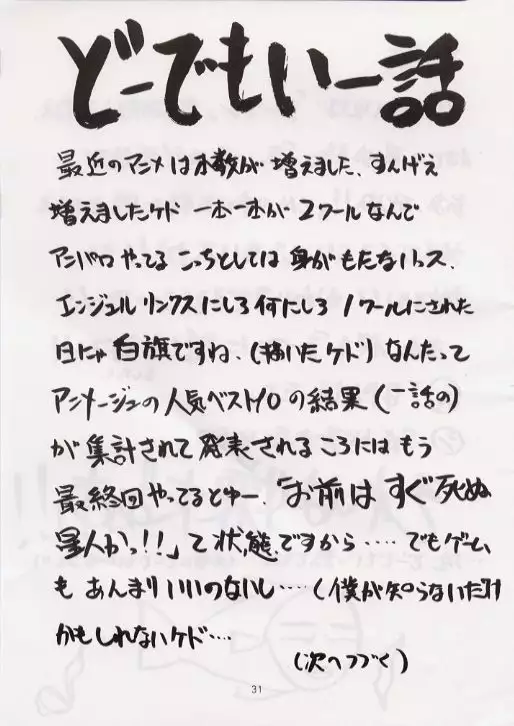 どーでもいー話
最近のアニメは本数が増えました、すんげえ
増えましたケド 一本一本が2クールなんで
アンパロやってるこっちとしては身がもたないっス、
エンジェルリンクスにしろ何にしろ1クールにされた
日にゃ白旗ですね、(描いたケド) なんたって
アニメージュの人気ベスト10の結果(一話の)
が集計されて発表されるころにはもう
最終回やってるとゆー、「お前はすぐ死ぬ
星人かっ!!」て状態ですから‥‥ でもゲーム
もあんまりいいのないし‥‥(僕が知らないだけ
かもしれないケド‥‥
(次へつづく)
31